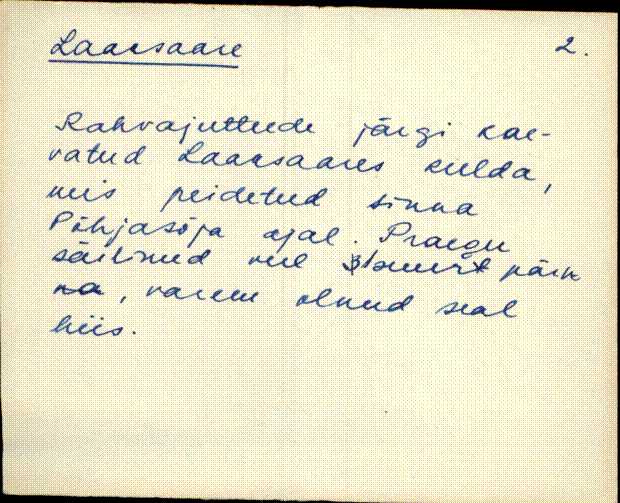 Laarsaare 2.
Rahvajuttude järgi kae-
vatud Laarsaares kulda,
mis peidetud sinna
Põhjasõja ajal. Praegu
säilinud veel 3 suurt pärn
na, varem olnud seal
hiis.